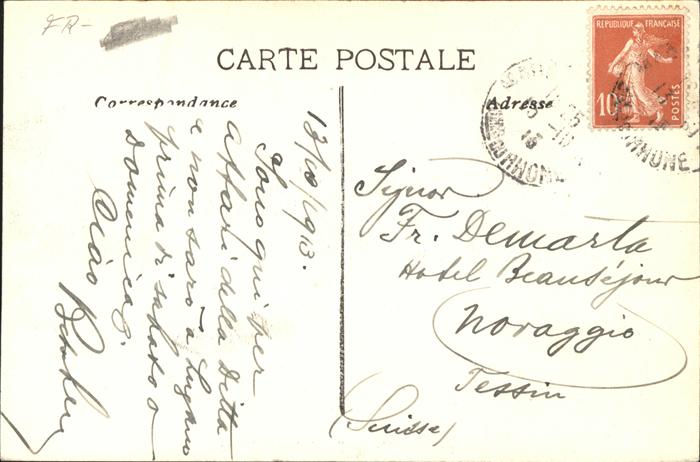 FR-
CARTE POSTALE
Correspondance
Adresse
REPUBLIQUE FRANÇAISE
10
POSTES
13/10/1913.
Sono qui per
affari della ditta
e non sarò a Lugano
prima di sabato o
domenica.
Ciao
Signor
Fr. Demarta
Hotel Beauséjour
Novaggio
Tessin
(Suisse)